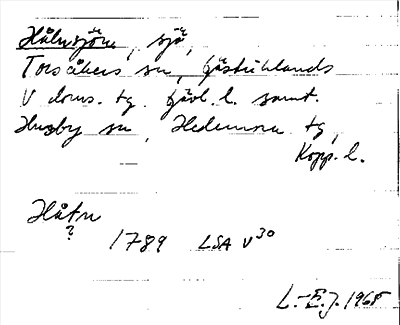 Håbnsjön, sjö,
Torsåkers sn, Gästriklands
V doms. tg. Gävl. l. samt.
Husby sn, Hedemora tg,
Kopp. l.
Håtn
?
1789 LSA V 30
L.-E. J. 1965